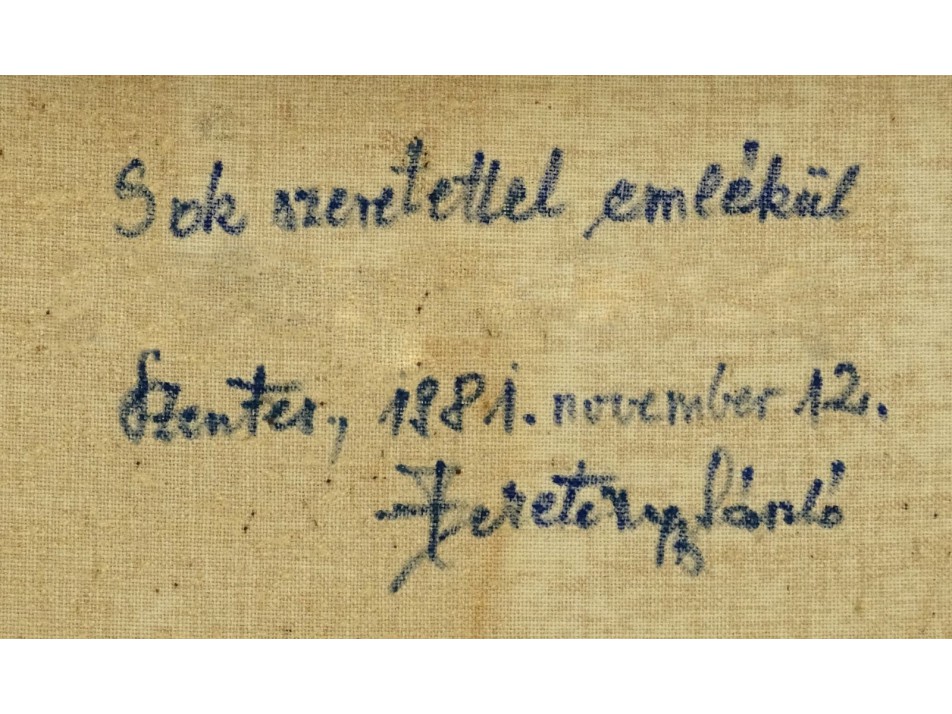 Sok szeretettel emlékül
Szentes, 1981. november 12.
László